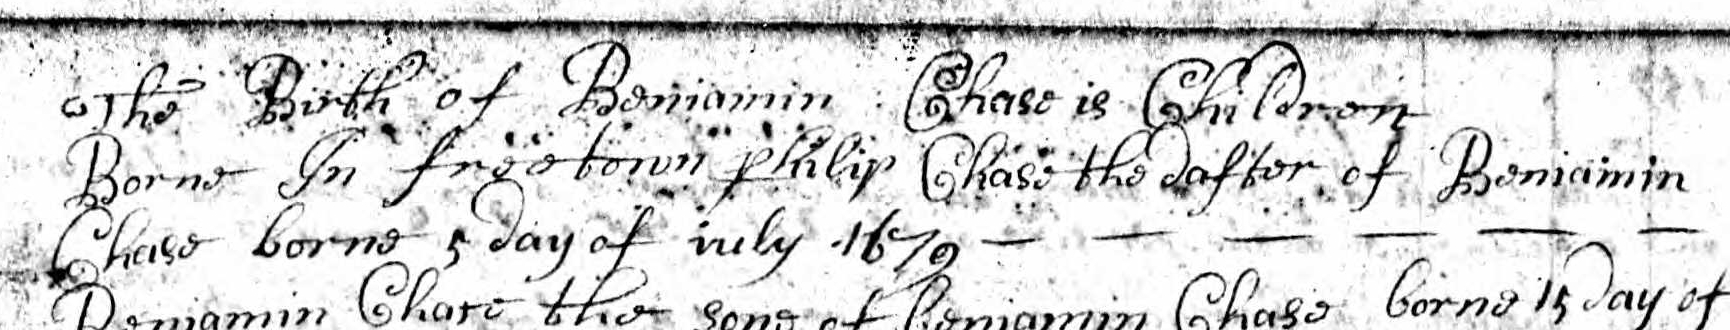 The Birth of Beniamin Chase is Children
Borne In freetown philip Chase the dafter of Beniamin
Chase borne 5 day of iuly 1679
Beniamin Chase the sone of Beniamin Chase borne 15 day of